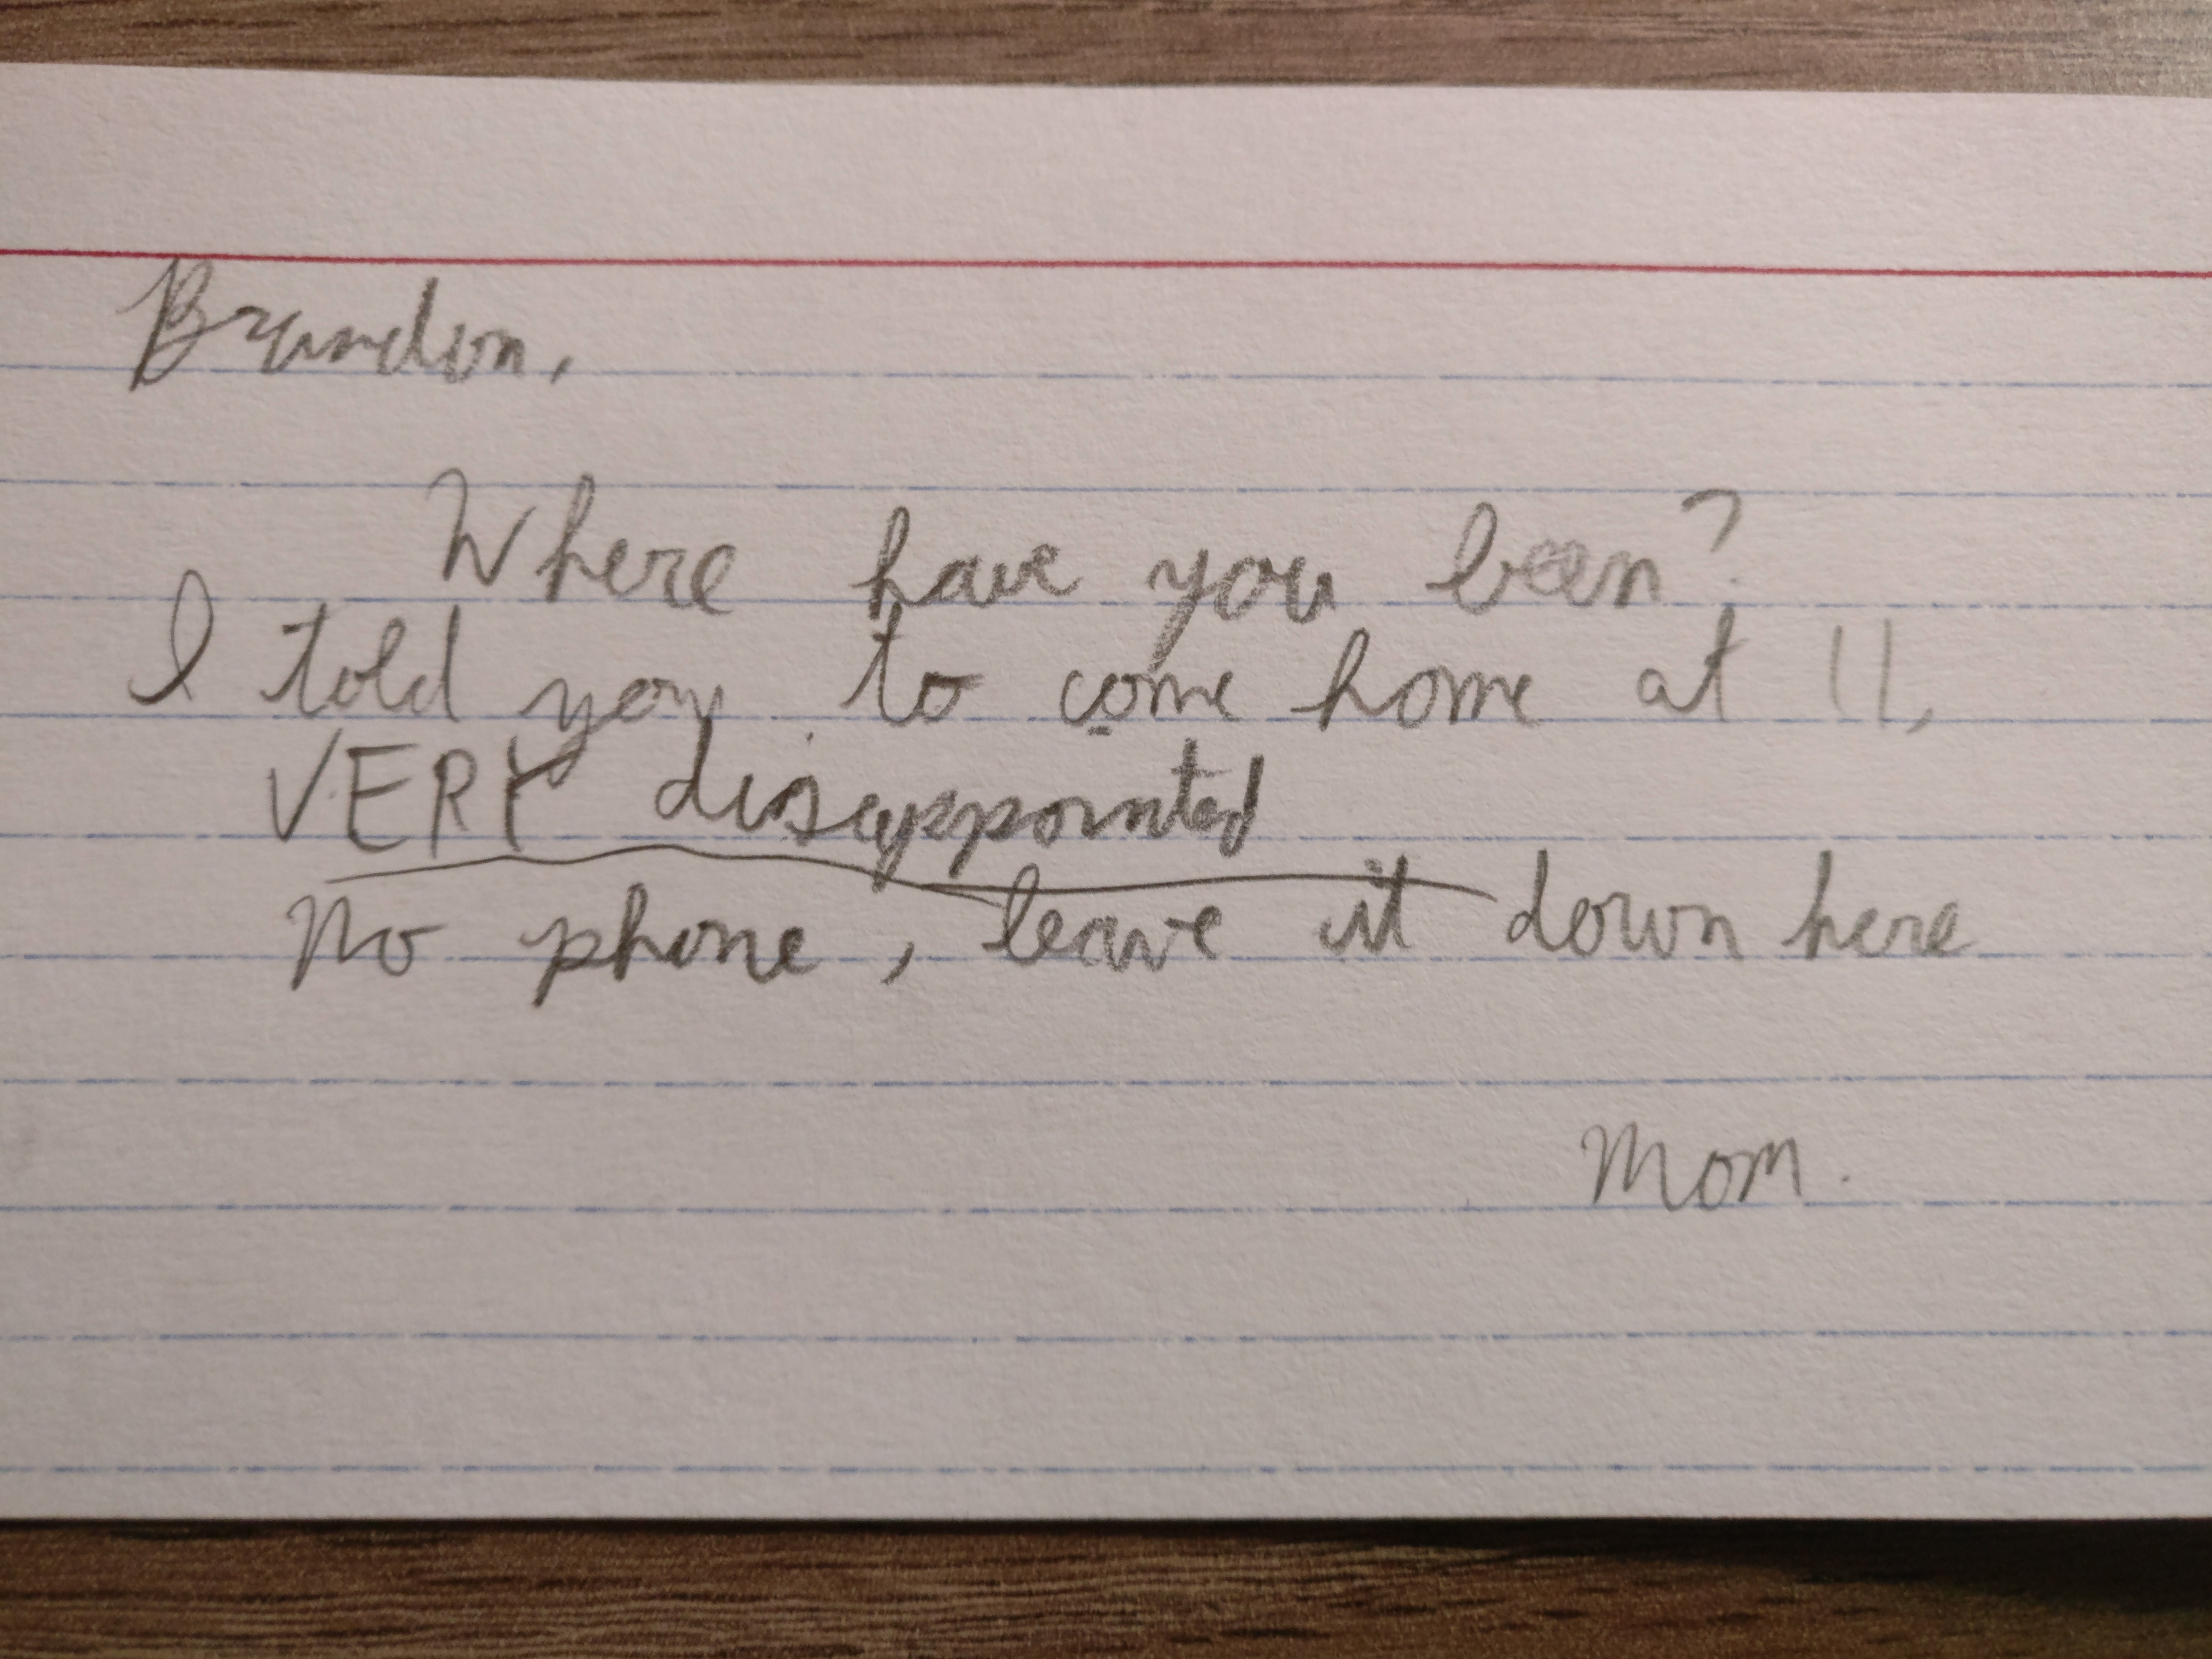 Brandon,
Where have you been?
I told you to come home at 11,
VERY disappointed
No phone, leave it down here
Mom.